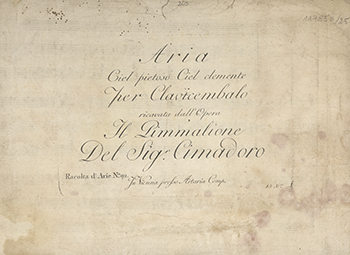 144850/35
Aria
Ciel pietoso Ciel clemente
per Clavicembalo
ricavata dall'Opera
Il Pimmalione
Del Sigr. Cimadoro
Racolta d'Arie No. 91.
In Vienna presso Artaria Comp.